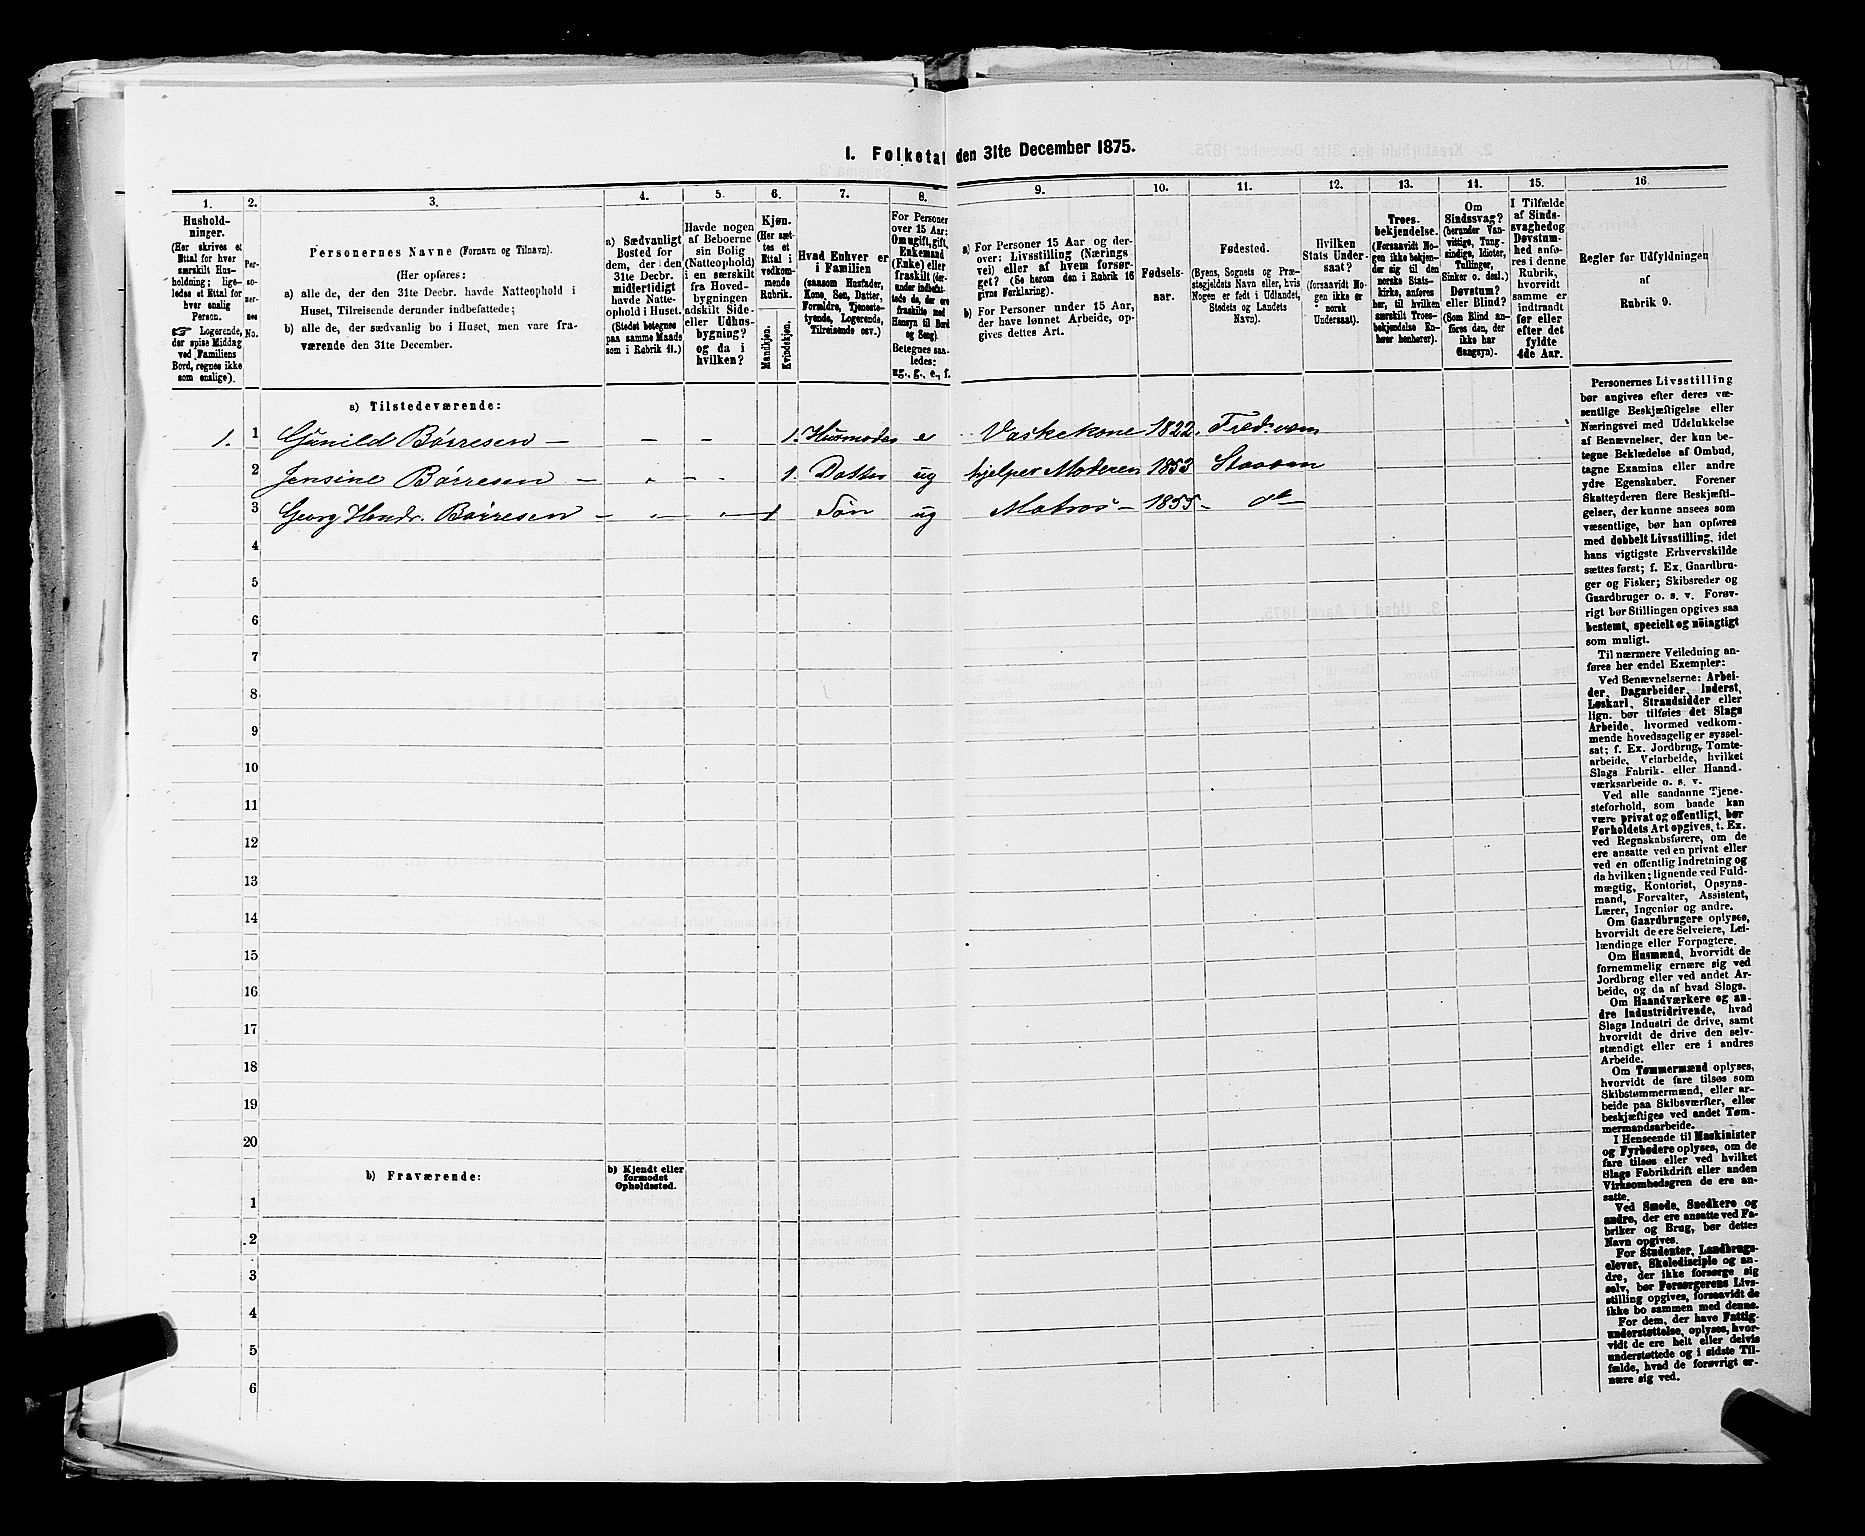 1. Folketal den 31te December 1875.
1.
Hushold-
ninger.
(Her skrives et
Ettal for hver
særskilt Hus-
holdning; lige-
ledes et Ettal for
hver enslig
Person.
☞ Logerende,
der spise Middag
ved Familiens
Bord, regnes ikke
som enslige).
2.
Per-
soner-
nes
No.
3.
Personernes Navne (Fornavn og Tilnavn).
(Her opføres:
a) alle de, der den 31te Decbr. havde Natteophold i
Huset, Tilreisende derunder indbefattede;
b) alle de, der sædvanlig bo i Huset, men vare fra-
værende den 31te December.
4.
a) Sædvanligt
Bosted for
dem, der i den
31te Decbr.
midlertidigt
havde Natte-
ophold i Huset.
(Stedet betegnes
paa samme Maade
som i Rubrik 11.)
5.
Havde nogen
af Beboerne
sin Bolig
(Natteophold)
i en særskilt
fra Hoved-
bygningen
adskilt Side-
eller Udhus-
bygning?
og da i
hvilken?
6.
Kjøn.
(Her sæt-
tes et
Ettal i
vedkom-
mende
Rubrik.
Mandkjøn.
Kvindekjøn.
7.
Hvad Enhver er
i Familien
(saasom Husfader,
Kone, Søn, Datter,
Forældre, Tjeneste-
tyende, Logerende,
Tilreisende osv.)
8.
For Personer
over 15 Aar:
Om ugift, gift,
Enkemand
(Enke) eller
fraskilt (der-
under indbefat-
tede de, der ere
fraskilte med
Hensyn til Bord
og Seng).
Betegnes saa-
ledes:
ug., g., e., f.
9.
a) For Personer 15 Aar og der-
over: Livsstilling (Nærings
vei) eller af hvem forsør-
get? (Se herom den i Rubrik 16
givne Forklaring).
b) For Personer under 15 Aar,
der have lønnet Arbeide, op-
gives dettes Art.
10.
Fødsels-
aar.
11.
Fødested.
(Byens, Sognets og Præ-
stegjeldets Navn eller, hvis
Nogen er født i Udlandet,
Stedets og Landets
Navn).
12.
Hvilken
Stats Under-
saat?
(forsaavidt No-
gen ikke er
norsk
Undersaat).
13.
Troes-
bekjendelse.
(Forsaavidt No-
gen ikke bekjen-
der sig til den
norske Stats-
kirke, anføres
her, til hvilken
særskilt Troes-
bekjendelse En-
hver henhører).
14.
Om
Sindssvag?
(herunder Van-
vittige, Tung-
sindige, Idioter,
Tullinger,
Sinker o. desl.)
Døvstum?
eller Blind?
(Som Blind an-
føres den, der
ikke har
Gangsyn).
15.
I Tilfælde
af Sinds-
svaghed og
Døvstum-
hed anfø-
res i denne
Rubrik,
hvorvidt
samme er
indtraadt
før eller
efter det
fyldte
4de Aar.
16.
Regler for Udfyldningen
af
Rubrik 9.
a) Tilstedeværende:
1. 1 Gunild Børresen — — - 1. Husmoder e Vaskekone 1822. Fredsværn
2 Jensine Børresen — - - - 1. Datter ug hjelper Moderen 1853 Staværn
3 Georg Hendr. Børresen — - - 1 Søn ug Matros — 1855 - do
4
5
6
7
8
9
10
11
12
13
14
15
16
17
18
19
20
b) Fraværende:
b) Kjendt eller
formodet
Opholdssted.
1
2
3
4
5
6
Personernes Livsstilling
bør angives efter deres væ-
sentlige Beskjæftigelse eller
Næringsvei med Udelukkelse
af Benævnelser, der kun be-
tegne Beklædelse af Ombud,
tagne Examina eller andre
ydre Egenskaber. Forener
Skatteyderen flere Beskjæfti-
gelser, der kunne ansees som
væsentlige, bør han opføres
med dobbelt Livsstilling, idet
hans vigtigste Erhvervskilde
sættes først; f. Ex. Gaardbru-
ger og Fisker; Skibsreder og
Gaardbruger o. s. v. Forøv-
rigt bør Stillingen opgives saa
bestemt, specielt og nöiagtigt
som muligt.
Til nærmere Veiledning an-
føres her endel Exempler:
Ved Benævnelserne: Arbei-
der, Dagarbeider, Inderst,
Løskarl, Strandsidder eller
lign. bør tilføies det Slags
Arbeide, hvormed vedkom-
mende hovedsagelig er syssel-
sat; f. Ex. Jordbrug, Tomte-
arbeide, Veiarbeide, hvilket
Slags Fabrik- eller Haand-
værksarbeide o. s. v.
Ved alle saadanne Tjene-
steforhold, som baade kan
være privat og offentligt, bør
Forholdets Art opgives, t. Ex.
ved Regnskabsførere, om de
ere ansatte ved en privat eller
ved en offentlig Indretning og
da hvilken; lignende ved Fuld-
mægtig, Kontorist, Opsyns-
mand, Forvalter, Assistent,
Lærer, Ingeniør og andre.
Om Gaardbrugere oplyses,
hvorvidt de ere Selveiere, Lei-
lændinge eller Forpagtere.
Om Husmænd, hvorvidt de
fornemmelig ernære sig ved
Jordbrug eller ved andet Ar-
beide, og da af hvad Slags.
Om Haandværkere og an-
dre Industridrivende, hvad
Slags Industri de drive, samt
hvorvidt de drive den selv-
stændigt eller ere i andres
Arbeide.
Om Tømmermænd oplyses,
hvorvidt de fare tilsøs som
Skibstømmermænd, eller ar-
beide paa Skibsværfter, eller
beskjæftiges ved andet Tøm-
mermandsarbeide.
I Henseende til Maskinister
og Fyrbødere oplyses, om de
fare tilsøs eller ved hvilket
Slags Fabrikdrift eller anden
Virksomhedsgren de ere an-
satte.
Ved Smede, Snedkere og
andre, der ere ansatte ved Fa-
briker og Brug, bør dettes
Navn opgives.
For Studenter, Landbrugs-
elever, Skoledisciple og an-
dre, der ikke forsørge sig
selv, bør Forsørgerens Livs-
stilling opgives, forsaavidt de
ikke bo sammen med denne.
For dem, der have Fattig-
understøttelse, oplyses, hvor-
vidt de ere helt eller delvis
understøttede og i sidste Til-
fælde, hvad de forøvrigt er-
nære sig ved.